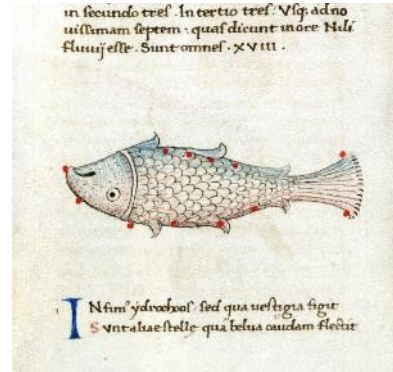 in secundo tres . In tertio tres . Vsq; ad no
uissimam septem . quas dicunt in ore Nili
fluuij esse . Sunt omnes . XVIII .
INfim' ydrochoos' sed qua uestigia figit
Sunt aliae stelle qua belua caudam flectit